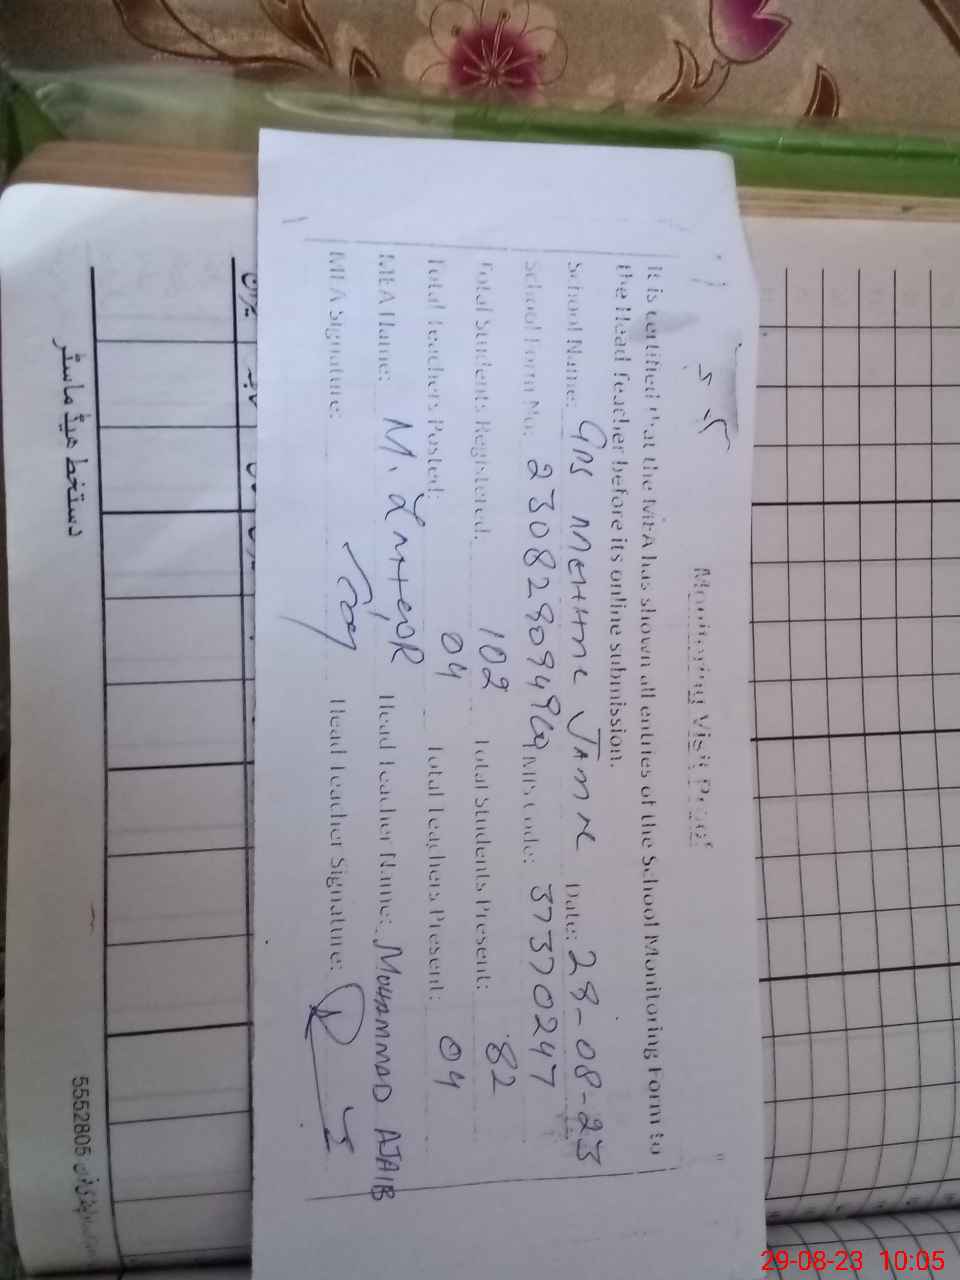 Monitoring Visit Proof
It is certified that the MEA has shown all entries of the School Monitoring Form to
the Head Teacher before its online submission.
School Name: GPS MEHHNE JAMNE Date: 28-08-23
School Form No: 230828094969 EMIS Code: 37370247
Total Students Registered: 102 Total Students Present: 82
Total Teachers Posted: 04 Total Teachers Present: 04
MEA Name: M. Head Teacher Name: MOHAMMAD AJAIB
MEA Signature: Head Teacher Signature:
دستخط ہیڈ ماسٹر
5552805
29-08-23 10:05